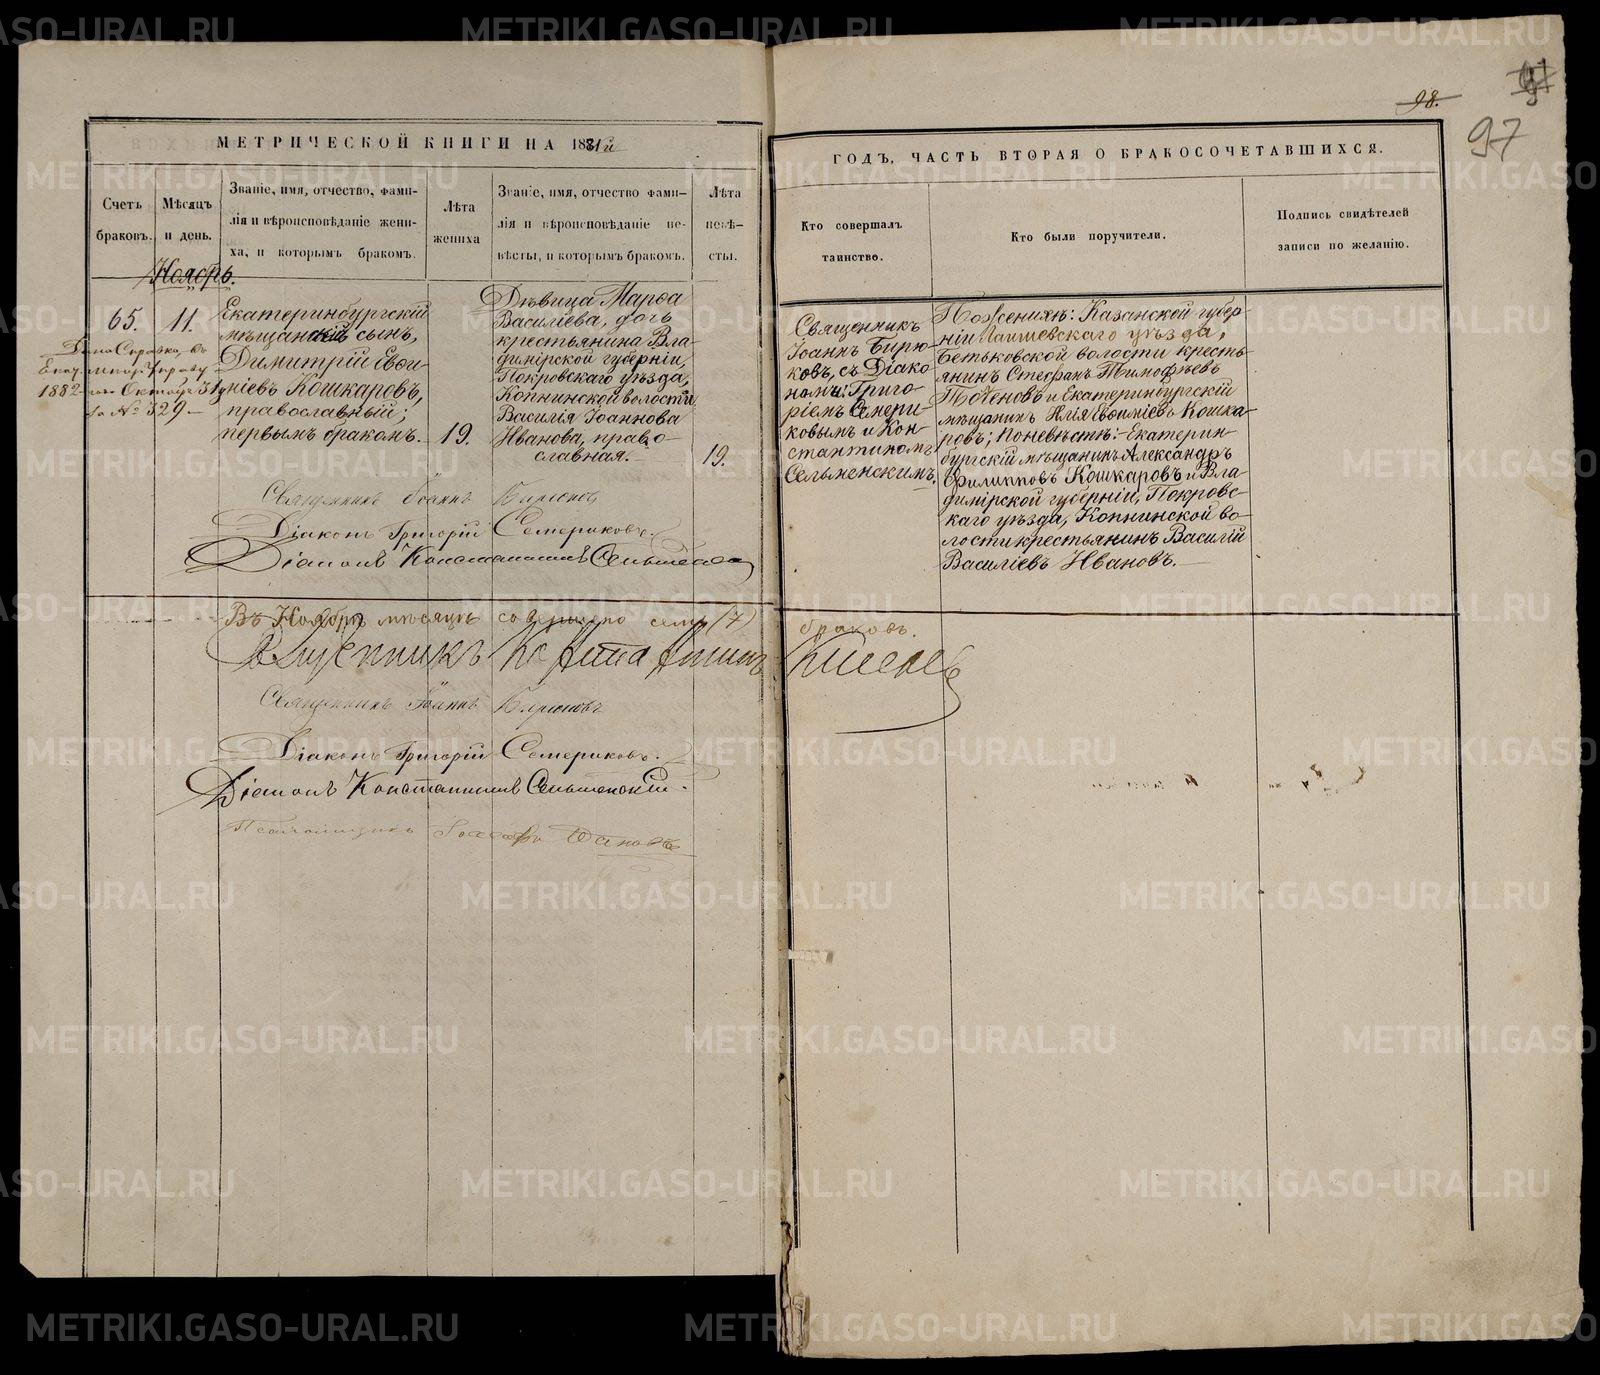 98.
97
МЕТРИЧЕСКОЙ КНИГИ НА 1881й
ГОДЪ, ЧАСТЬ ВТОРАЯ О БРАКОСОЧЕТАВШИХСЯ.
Счетъ
браковъ.
Мѣсяцъ
и день.
Званіе, имя, отчество, фами-
лія и вѣроисповѣданіе жени-
ха, и которымъ бракомъ.
Лѣта
жениха
Званіе, имя, отчество фами-
лія и вѣроисповѣданіе не-
вѣсты, и которымъ бракомъ.
Лѣта
невѣ-
сты.
Кто совершалъ
таинство.
Кто были поручители.
Подпись свидѣтелей
записи по желанію.
Ноябрь.
65.
11.
Дана Справка, въ
Екат. Управу
1882 Октября 31
за № 329
Екатеринбургскій
мѣщанскій сынъ,
Димитрій Евѳи-
міевъ Кошкаровъ,
православный;
первымъ бракомъ.
19.
Дѣвица Марѳа
Василіева, дочь
крестьянина Вла-
димірской губерніи,
Покровскаго уѣзда,
Копнинской волости
Василія Іоаннова
Иванова, право-
славная.
19.
Священникъ
Іоаннъ Бирю-
ковъ, съ Діако-
номъ: Григо-
ріемъ Семери-
ковымъ и Кон-
стантиномъ
Сельменскимъ.
По женихѣ: Казанской губер-
ніи Лаишевскаго уѣзда,
Бетьковской волости кресть-
янинъ Стефанъ Тимофѣевъ
и Екатеринбургскій
мѣщанинъ Илія Евѳиміевъ Кошка-
ровъ; по невѣстѣ: Екатерин-
бургскій мѣщанинъ Александръ
Филипповъ Кошкаровъ и Вла-
димірской губерніи, Покровс-
каго уѣзда, Копнинской во-
лости крестьянинъ Василій
Василіевъ Ивановъ.
Священникъ Іоаннъ Бирюковъ
Діаконъ Григорій Семериковъ.
Діаконъ Константинъ
Въ Ноябрѣ мѣсяцѣ совершено семь (7) браковъ.
Священникъ Константинъ
Священникъ Іоаннъ Бирюковъ
Діаконъ Григорій Семериковъ.
Діаконъ Константинъ Сельменскій.
Псаломщикъ
METRIKI.GASO-URAL.RU